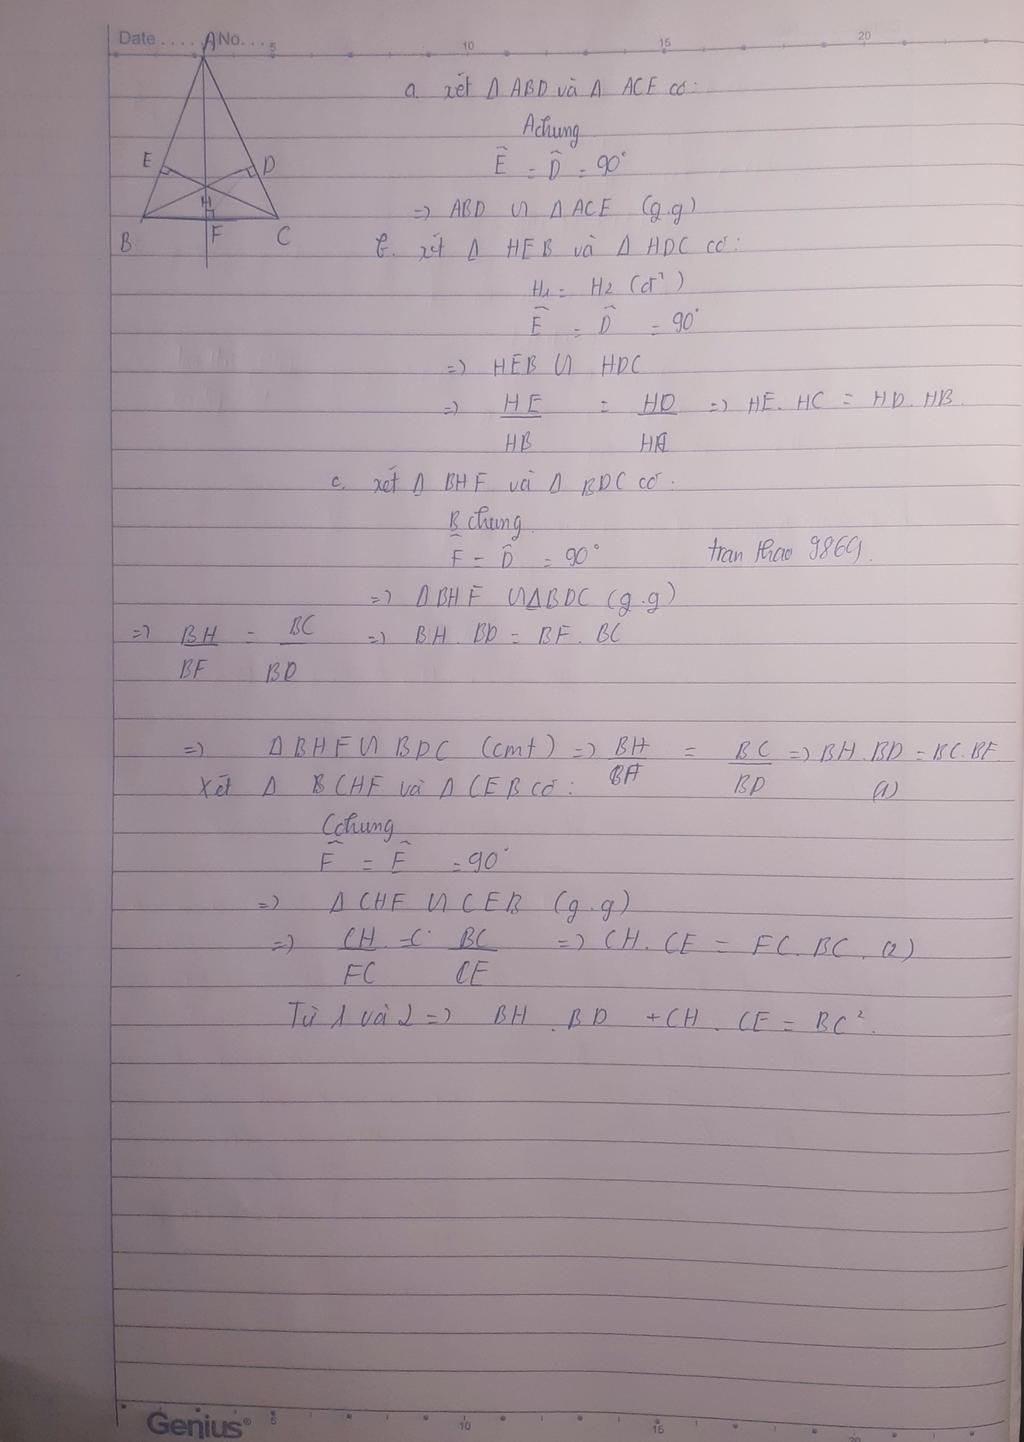 Date .... A No. ... 5 10 15 20
a. xét Δ ABD và Δ ACE có:
A chung
Ê = D̂ = 90°
=> ABD ∽ Δ ACE (g.g)
E D
H
B F C
b. xét Δ HEB và Δ HDC có:
H1 = H2 (đ²)
Ê = D̂ = 90°
=> HEB ∽ HDC
=> HE/HB = HD/HC => HE. HC = HD. HB
c. xét Δ BHF và Δ BDC có:
B chung
F̂ = D̂ = 90° tran thao 9869.
=> ΔBHF ∽ ΔBDC (g.g)
=> BH/BF = BC/BD => BH. BD = BF. BC
=> Δ BHF ∽ BDC (cmt) => BH/BF = BC/BD => BH. BD = BC. BF. (1)
Xét Δ BCHF và Δ CEB có:
C chung
F̂ = Ê = 90°
=> Δ CHF ∽ CEB (g.g)
=> CH/FC = BC/CE => CH. CE = FC. BC. (2)
Từ 1 và 2 => BH. BD + CH. CE = BC².
Genius® 5 10 15 20